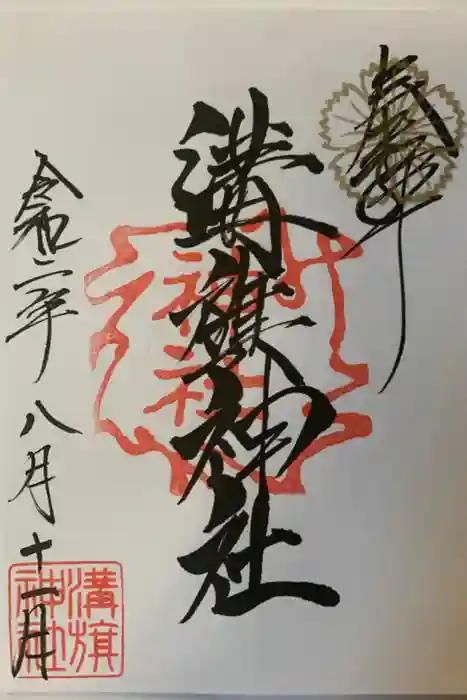 奉拝
溝旗神社
令和二年八月十一日
溝旗
神社